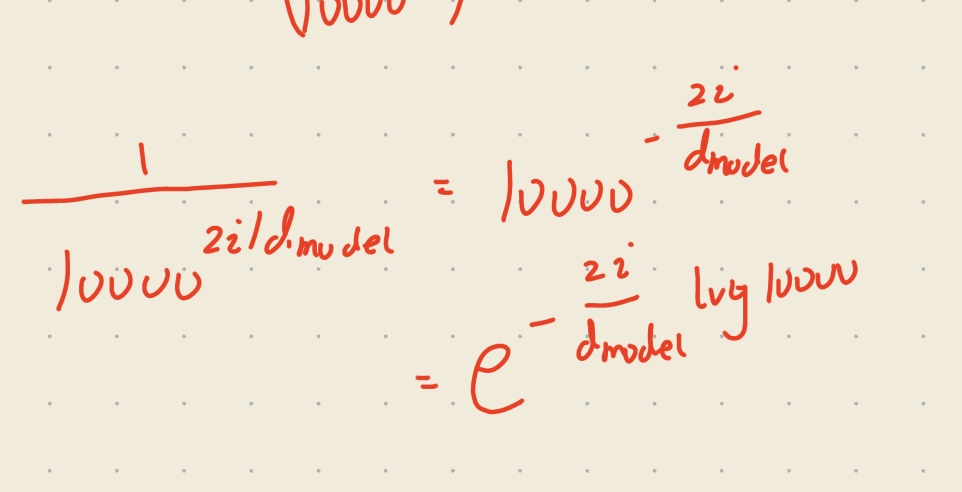 10000
1/10000^{2i/d_{model}} = 10000^{-\frac{2i}{d_{model}}}
= e^{-\frac{2i}{d_{model}} log 10000}